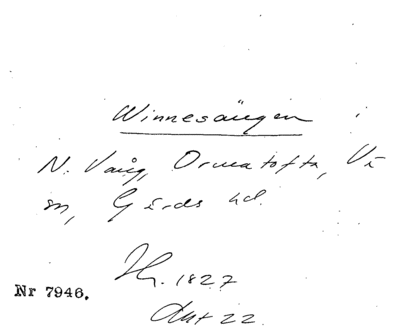 Winnesängen
N. Vång, Ormatofta, Vä
sn, Gärds hd.
1827
Nr 7946.
Akt 22